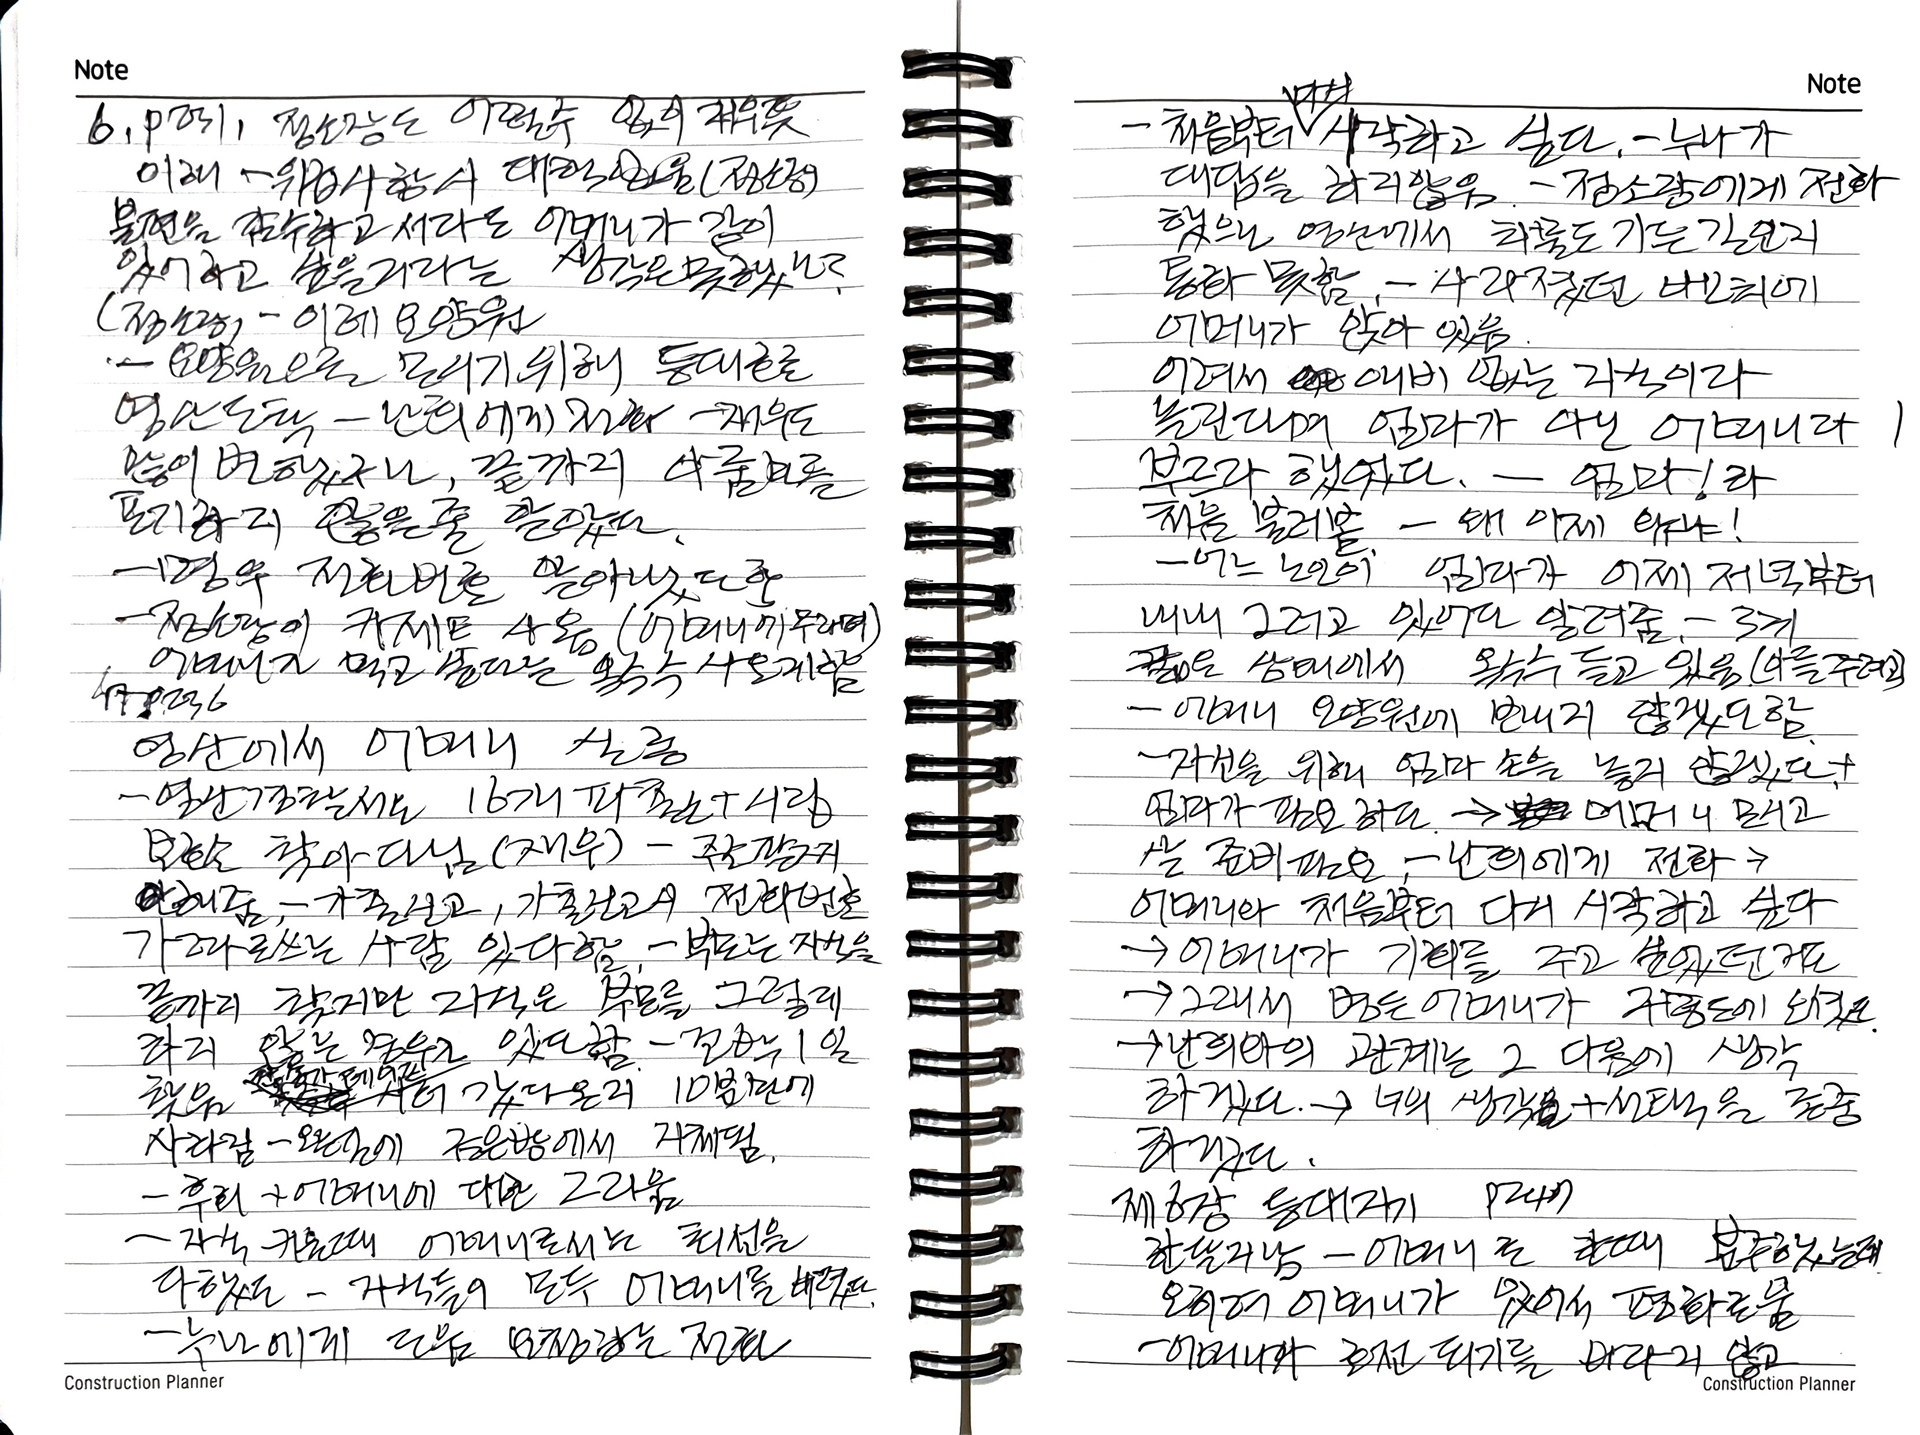 Note
6. p231, 정소장도 어쩔수 없이 재우뜻
이해 - 위급사항시 대책 없음 (정소장)
불편을 감수하고서라도 어머니가 같이
있어하고 싶을거라는 생각은 못했냐?
(정소장) - 이레 요양원
- 요양원으로 모시기 위해 등대로로
영산도착 - 난희에게 전화 - 재우도
많이 변했구나, 끝까지 아줌마를
포기하지 않을줄 알았다.
- 영우 전화번호 알아냈다 함
- 정소장이 카세트 사옴 (어머니에
어머니가 먹고 싶다는 옥수수 사오게함
p236
영산에서 어머니 실종
- 영산경찰서는 16개 파출소 + 시립
찾아다님 (재우) -
- 가출신고, 가출신고시 전화번호
가 따로쓰는 사람 있다함. - 부모는 자식을
끝까지 찾지만 자식은 부모를 그렇게
하지 않는 경우가 있다함. - 꼬박 1일
찾음 갔다온지 10분만에
사라짐 - 검은방에서 자체됨.
- 후회 + 어머니에 대한 그리움
- 자식 키울때 어머니로서는 최선을
다했다 - 자식들이 모두 어머니를 버렸다.
- 누나에게 도움 요청하는 전화
Construction Planner
Note
- 처음부터 시작하고 싶다. - 누나가
대답을 하지않음. - 정소장에게 전화
했으나 영산에서 하룻도 가는길인지
통화 못함. - 사라졌던 벤치에
어머니가 앉아 있음.
어려서 애비 없는 자식이라
놀린다며 엄마가 아닌 어머니라
부르라 했었다. - 엄마! 라
처음 불러봄 - 왜 이제 와냐!
- 어느 노인이 엄마가 어제 저녁부터
내내 그러고 있었다 알려줌. - 3개
상태에서 옥수수 들고 있음. (아들주려고)
- 어머니 요양원에 보내지 않겠다 함.
- 자신을 위해 엄마 손을 놓지 않겠다. +
엄마가 필요하다. → 어머니 모시고
살 준비필요. - 난희에게 전화 →
어머니와 처음부터 다시 시작하고 싶다
→ 어머니가 기회를 주고 싶었던거다
→ 그래서 병든어머니가 구명도에 오셨다.
→ 난희와의 관계는 그 다음에 생각
하겠다. → 너의 생각 + 선택을 존중
하겠다.
제6장 등대지기 p247
한달지남 - 어머니로 한때 분주했는데
오히려 어머니가 있어서 평화로움
- 어머니가 호전 되기를 바라지 않고
Construction Planner